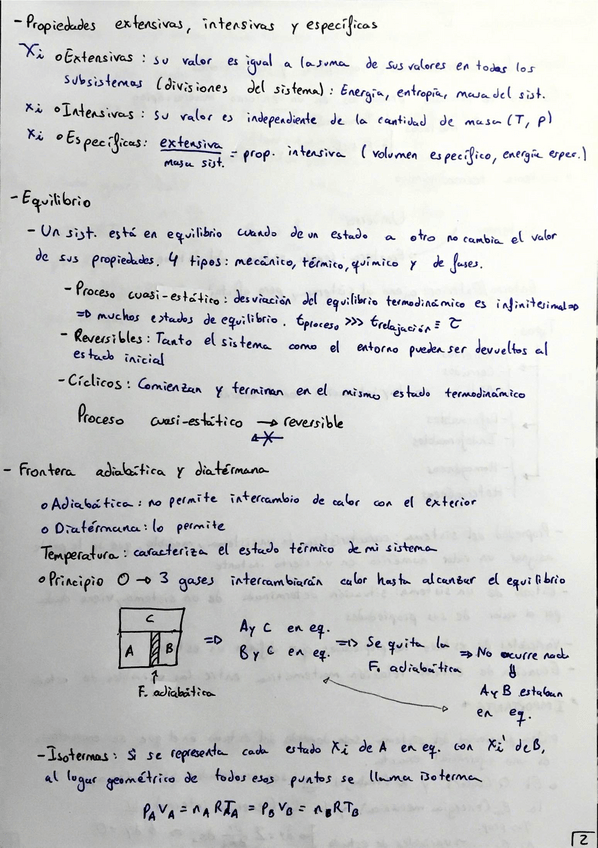 - Propiedades extensivas, intensivas y específicas
Xi o Extensivas : su valor es igual a la suma de sus valores en todos los
subsistemas (divisiones del sistema) : Energía, entropía, masa del sist.
xi o Intensivas : su valor es independiente de la cantidad de masa (T, p)
xi o Específicas: extensiva / masa sist. = prop. intensiva ( volumen específico, energía espec.)
- Equilibrio
- Un sist. está en equilibrio cuando de un estado a otro no cambia el valor
de sus propiedades. 4 tipos: mecánico, térmico, químico y de fases.
- Proceso cuasi-estático : desviación del equilibrio termodinámico es infinitesimal =>
=> muchos estados de equilibrio. tproceso >>> trelajación ≡ τ
- Reversibles: Tanto el sistema como el entorno pueden ser devueltos al
estado inicial
- Cíclicos: Comienzan y terminan en el mismo estado termodinámico
Proceso cuasi-estático → reversible
- Frontera adiabática y diatérmana
o Adiabática : no permite intercambio de calor con el exterior
o Diatérmana : lo permite
Temperatura : caracteriza el estado térmico de mi sistema
o Principio 0 → 3 gases intercambiarán calor hasta alcanzar el equilibrio
C
A B
F. adiabática
=> A y C en eq.
B y C en eq.
=> Se quita la
F. adiabática
=> No ocurre nada
⇓
A y B estaban
en eq.
- Isotermas : Si se representa cada estado Xi de A en eq. con Xi' de B,
al lugar geométrico de todos esos puntos se llama isoterma
PA VA = nA R TA = PB VB = nB R TB
2